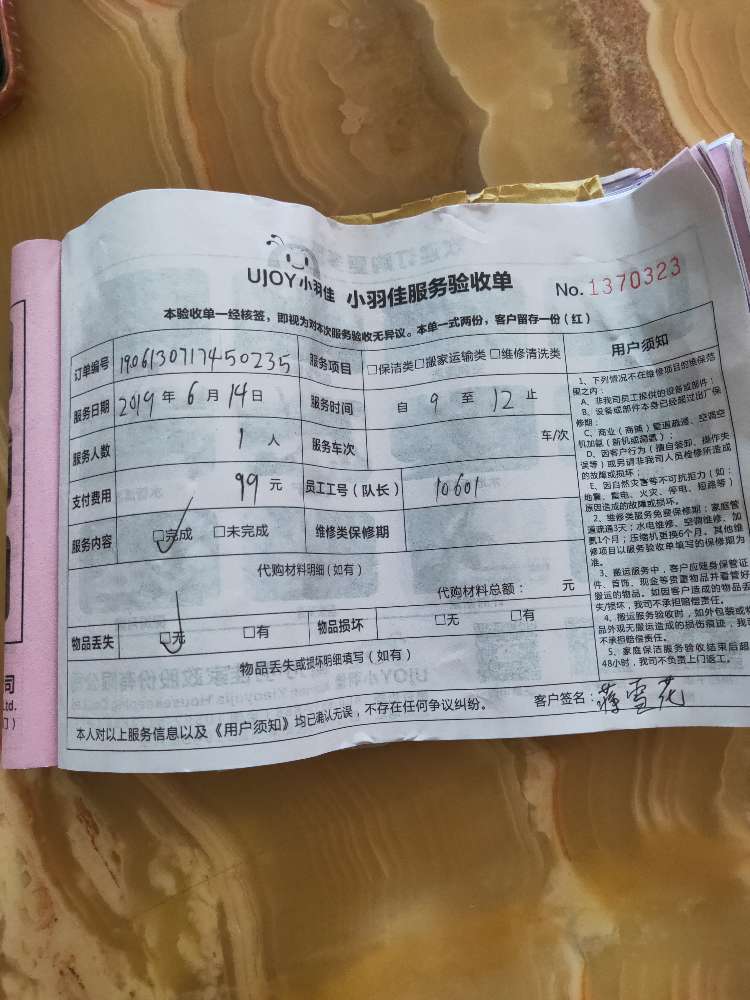 UJOY小羽佳 小羽佳服务验收单 No. 1370323
本验收单一经核签，即视为对本次服务验收无异议。本单一式两份，客户留存一份（红）
订单编号 190613071745​0235 服务项目 □保洁类□搬家运输类□维修清洗类
服务日期 2019 年 6 月 14 日 服务时间 自 9 至 12 止
服务人数 1 人 服务车次 车/次
支付费用 99 元 员工工号（队长） 10601
服务内容 □完成 □未完成 维修类保修期
代购材料明细（如有）
代购材料总额： 元
物品丢失 □无 □有 物品损坏 □无 □有
物品丢失或损坏明细填写（如有）
本人对以上服务信息以及《用户须知》均已确认无误，不存在任何争议纠纷。 客户签名：蒋雪花
用户须知
1、下列情况不在维修项目的换保范
围之内：
A、非我司员工提供的设备或部件；
B、设备或部件本身已经超过出厂保
修期；
C、商业（商铺）管道疏通、空调空
机加氨（新机或漏氨）；
D、因客户行为（擅自装卸、操作失
误等）或另请非我司人员检修所造成
的故障或损坏；
E、因自然灾害等不可抗拒力（如：
地震、雷电、火灾、停电、短路等）
原因造成的故障或损坏。
2、维修类服务免费保修期：家庭管
道疏通3天；水电维修、空调维修、加
氨1个月；压缩机更换6个月。其他维
修项目以服务验收单填写的保修期为
准。
3、搬运服务中，客户应随身保管证
件、首饰、现金等贵重物品并看管好
搬运的物品。如因客户造成的物品丢
失/损坏，我司不承担赔偿责任。
4、搬运服务验收时，如外包装或物
品外观无搬运造成的损伤痕迹，我司
不承担赔偿责任。
5、家庭保洁服务验收结束后超
48小时，我司不负责上门返工。
司
Ltd.